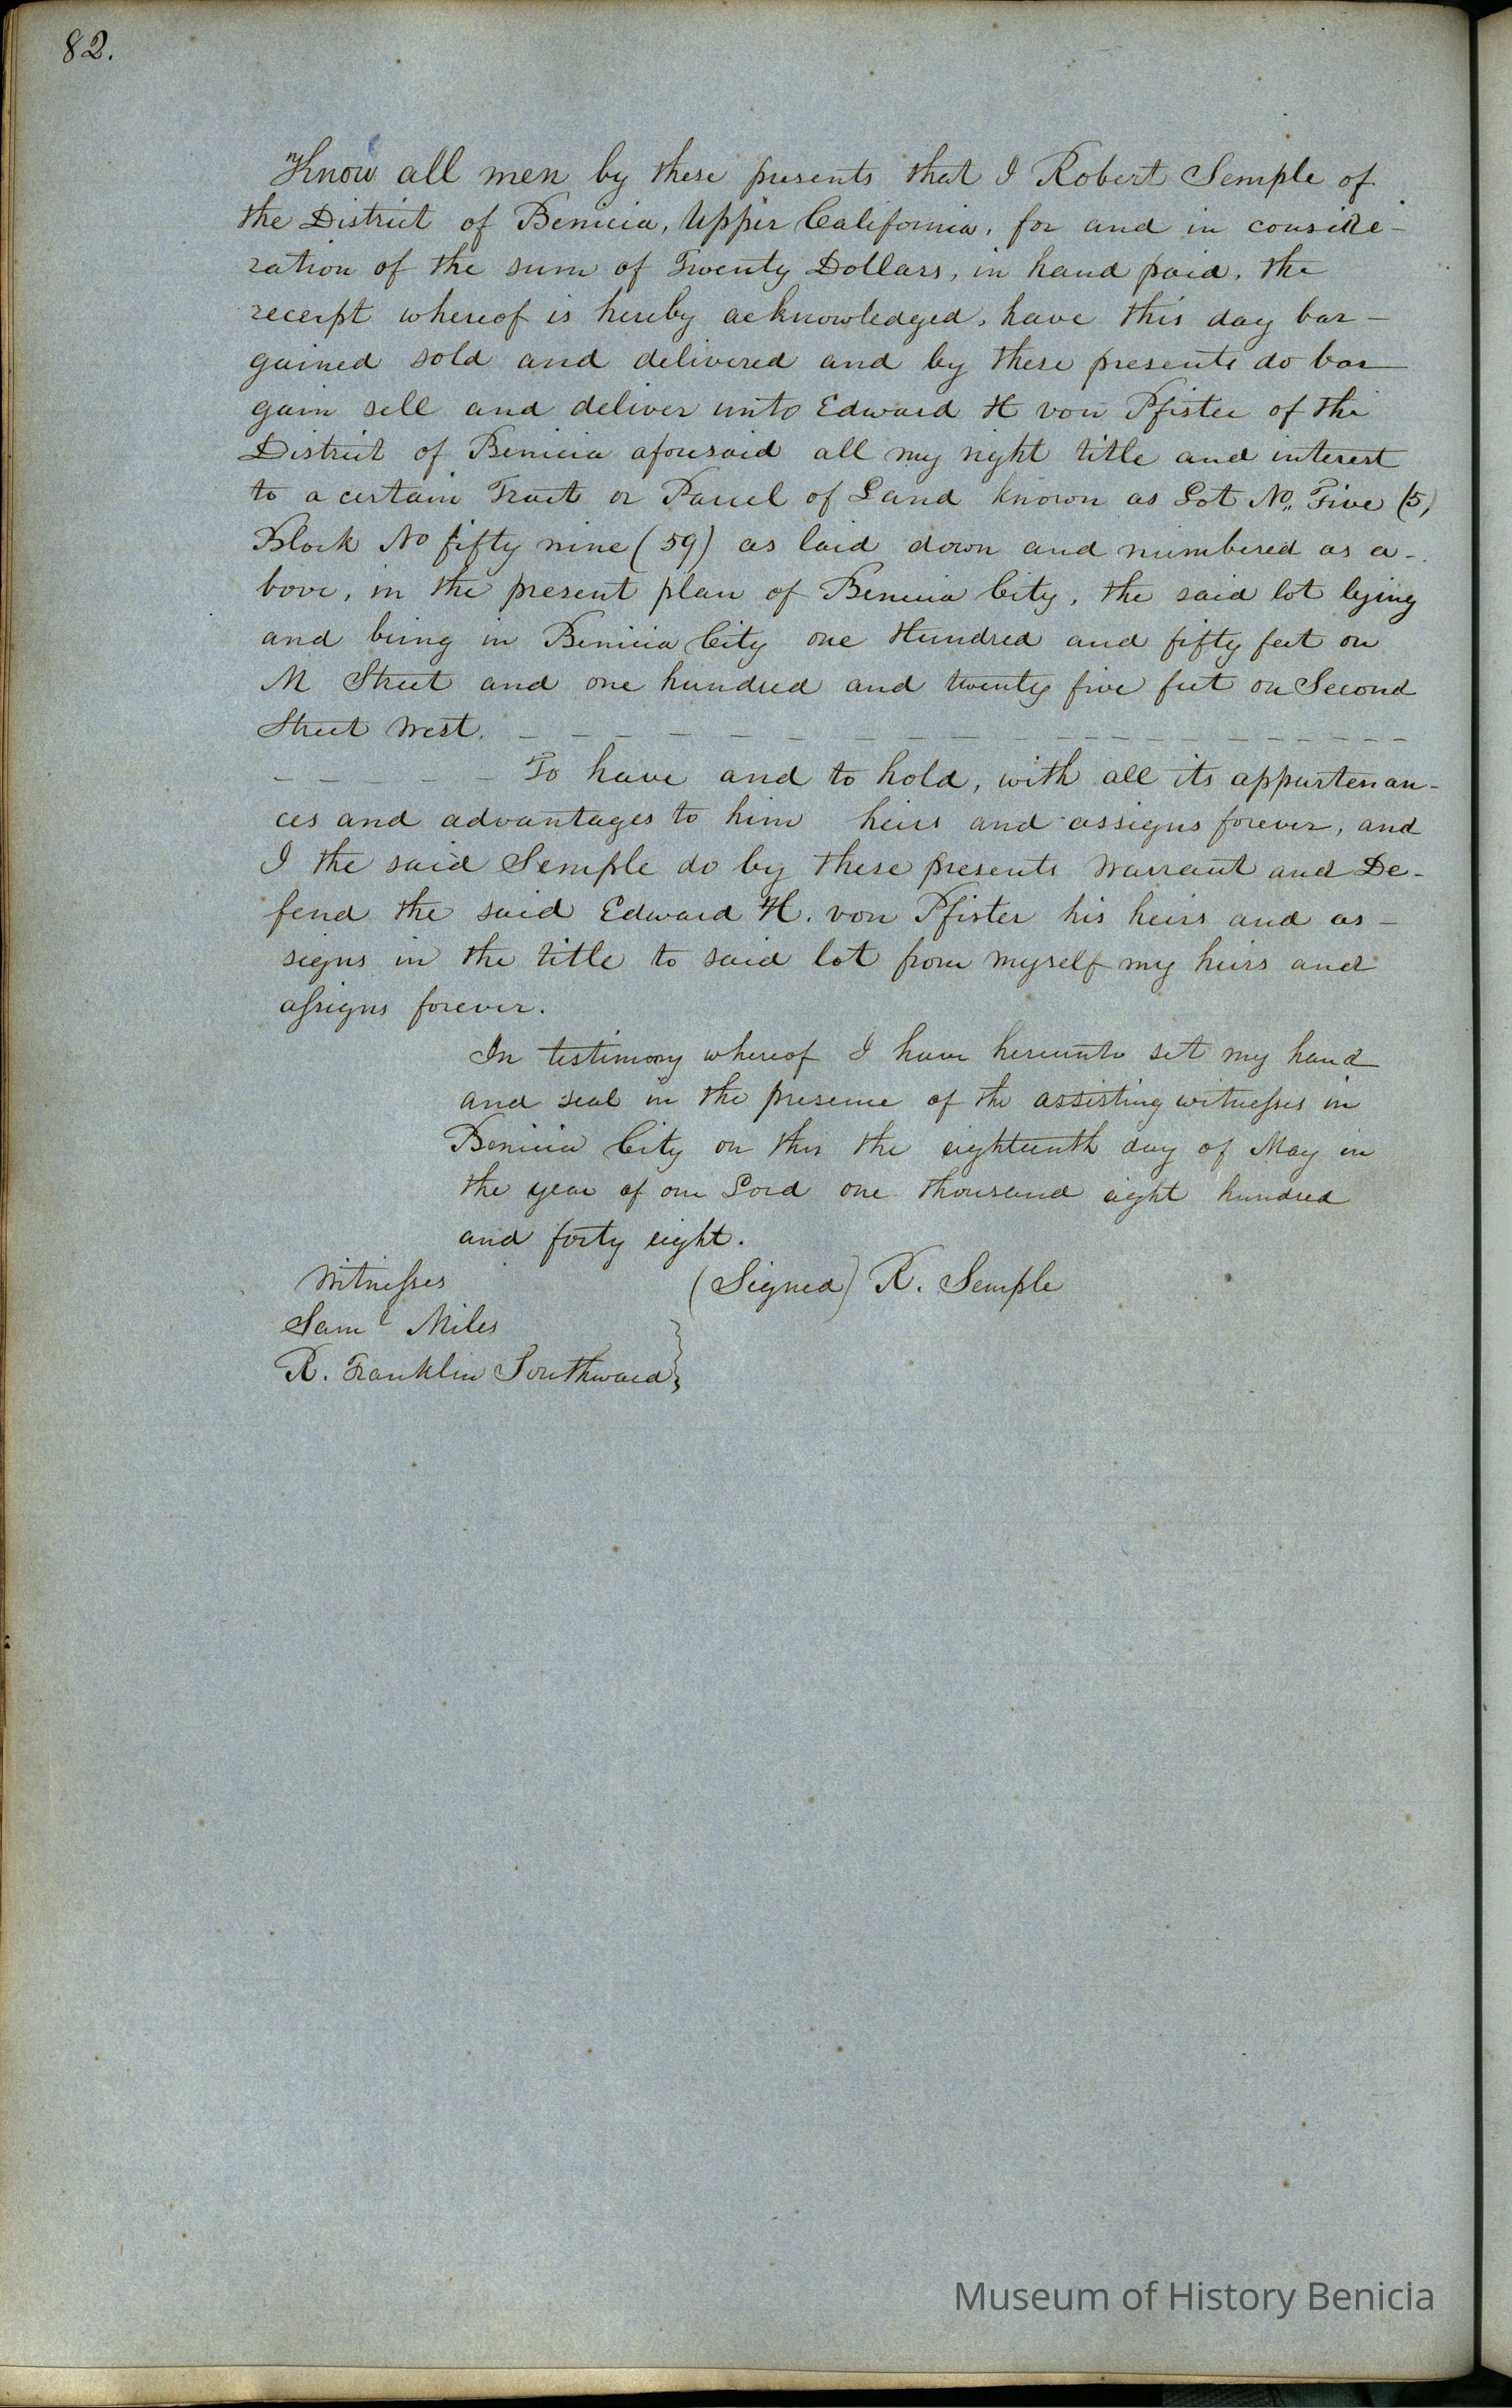 82.
Know all men by these presents that I Robert Semple of
the District of Benicia, Upper California, for and in conside-
ration of the sum of Twenty Dollars, in hand paid, the
receipt whereof is hereby acknowledged, have this day bar-
gained sold and delivered and by these presents do bar
gain sell and deliver unto Edward H von Pfister of the
District of Benicia aforesaid all my right title and interest
to a certain Tract or Parcel of Land known as Lot No. Five (5)
Block No fifty nine (59) as laid down and numbered as a-
bove, in the present plan of Benicia City, the said lot lying
and being in Benicia City one Hundred and fifty feet on
M Street and one hundred and twenty five feet on Second
Street West. - - - - - - - - - - - - - - - - - - - - -
- - - - - - To have and to hold, with all its appurtenan-
ces and advantages to him heirs and assigns forever, and
I the said Semple do by these presents Warrant and De-
fend the said Edward H. von Pfister his heirs and as-
signs in the title to said lot from myself my heirs and
assigns forever.
In testimony whereof I have hereunto set my hand
and seal in the presence of the assisting witnesses in
Benicia City on this the eighteenth day of May in
the year of our Lord one thousand eight hundred
and forty eight.
Witnesses (Signed) R. Semple
Saml Miles
R. Franklin Southward
Museum of History Benicia